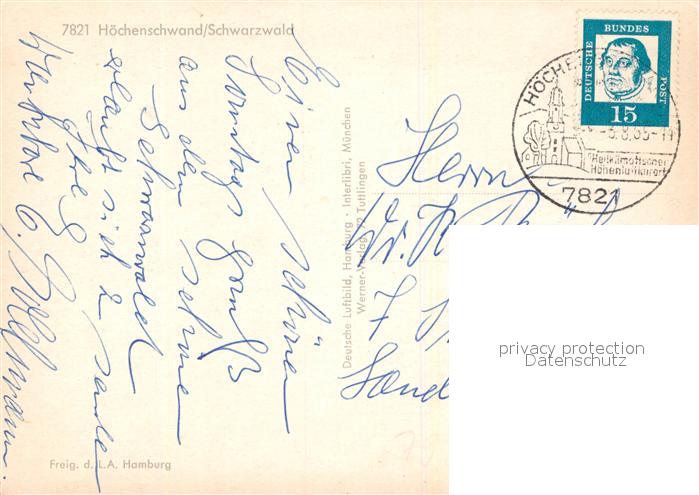 7821 Höchenschwand/Schwarzwald
Einen schönen
Sonntags Gruß
aus dem schönen
Schwarzwald
erlaubt sich zu senden
Ihre
Freig. d. L.A. Hamburg
Deutsche Luftbild, Hamburg · Interlibri, München
Werner-Verlag, 72 Tuttlingen
DEUTSCHE BUNDES POST
15
HÖCHE
8.65-1
Heilklimatischer
Höhenluftkurort
7821
Herrn
Dr. K.
7
privacy protection
Datenschutz